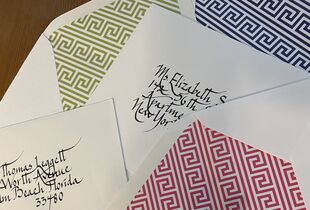 Ms Elizabeth S
Apartme
New York
Thomas Leggett
North Avenue
m Beach, Florida
33480